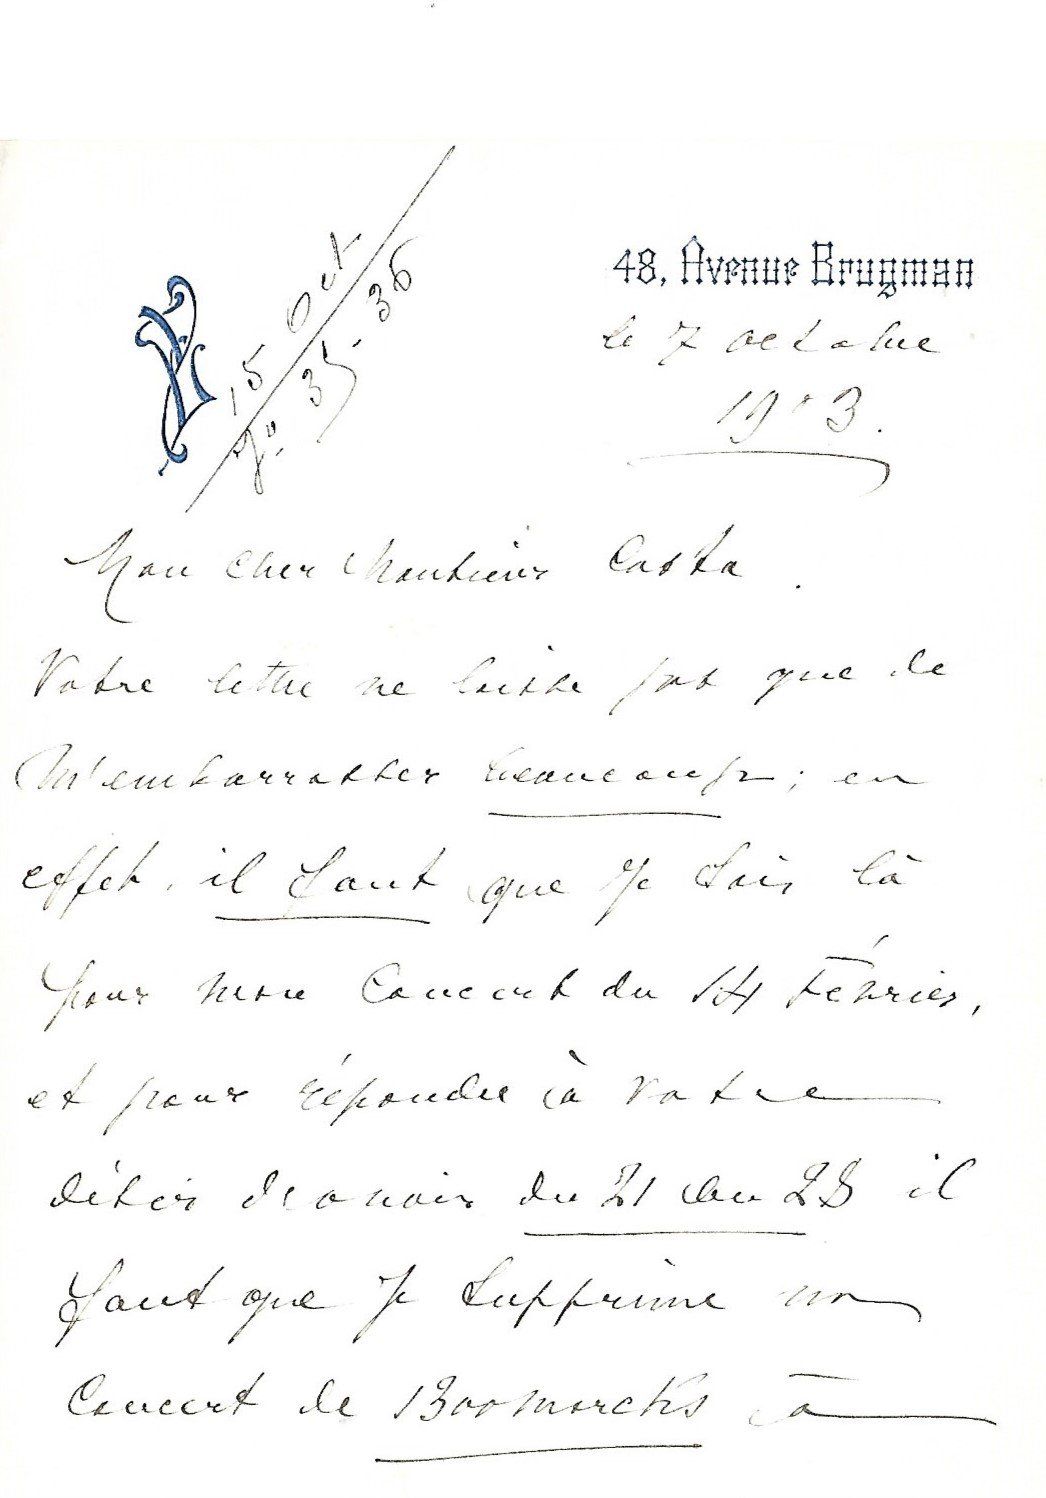 48, Avenue Brugman
15 Oct
No 35.36
le 7 octobre
1903.
Mon cher Monsieur Costa.
Votre lettre ne laisse pas que de
m'embarrasser beaucoup; en
effet, il faut que je sois là
pour mon Concert du 14 Février,
et pour répondre à votre
désir d'avoir du 21 au 28 il
faut que je supprime un
Concert de 1300 marcks à